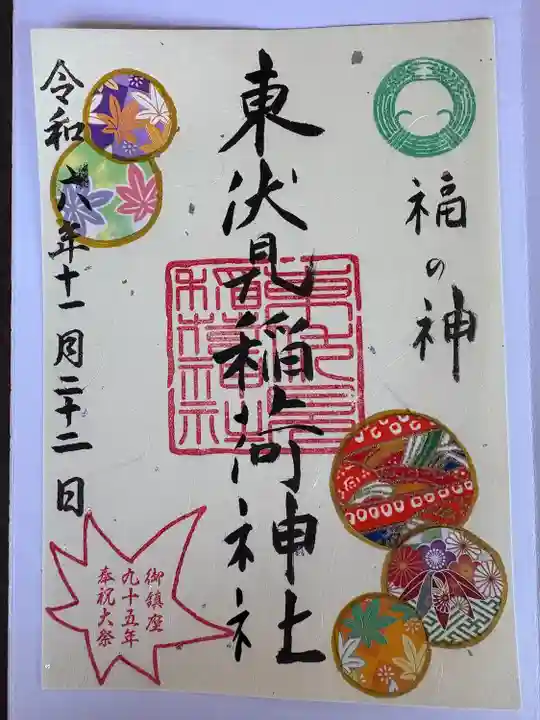 福の神
東伏見稲荷神社
令和六年十一月二十二日
御鎮座
九十五年
奉祝大祭